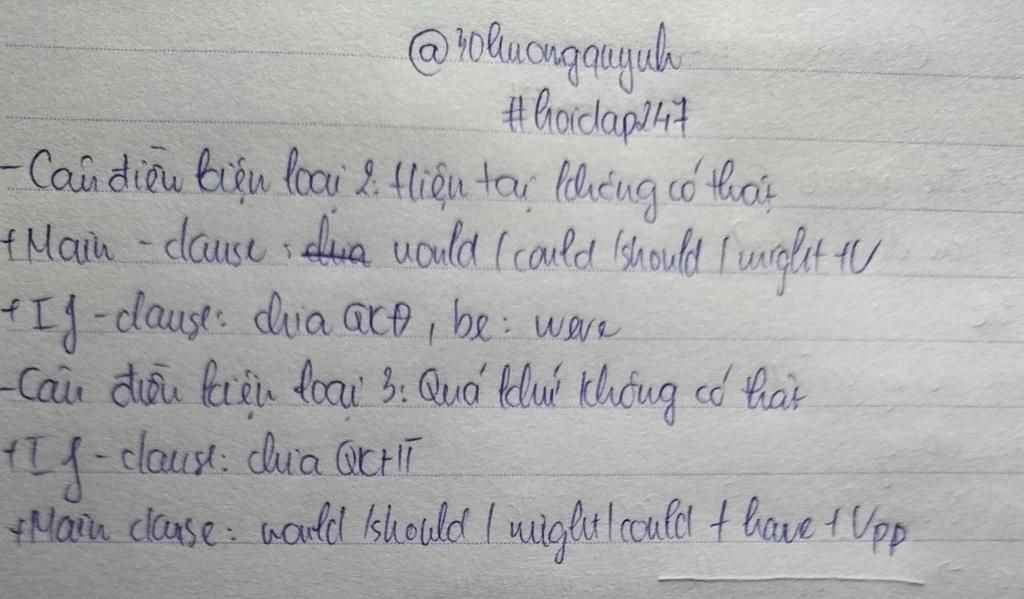 @30huongquynh
#hoidap247
- Câu điều kiện loại 2: Hiện tại không có thật
+ Main - clause : would / could / should / might + V
+ If - clause: chia QKĐ, be: were
- Câu điều kiện loại 3: Quá khứ không có thật
+ If - clause: chia QKHT
+ Main clause: would / should / might / could + have + Vpp